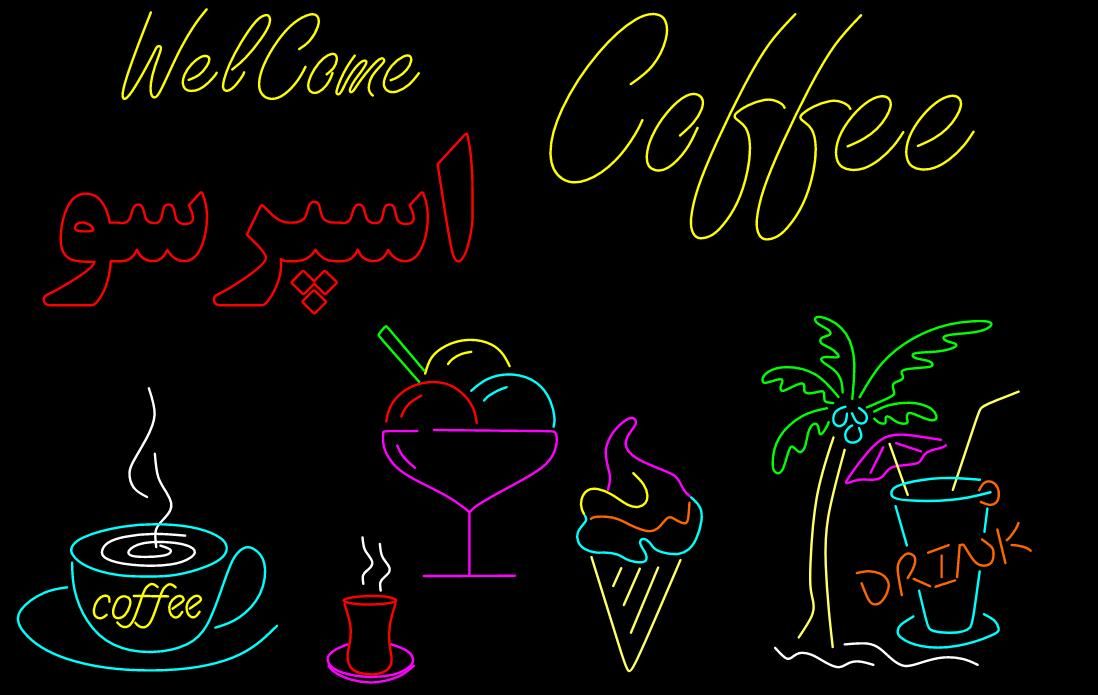 WelCome
Coffee
اسپرسو
coffee
DRINK